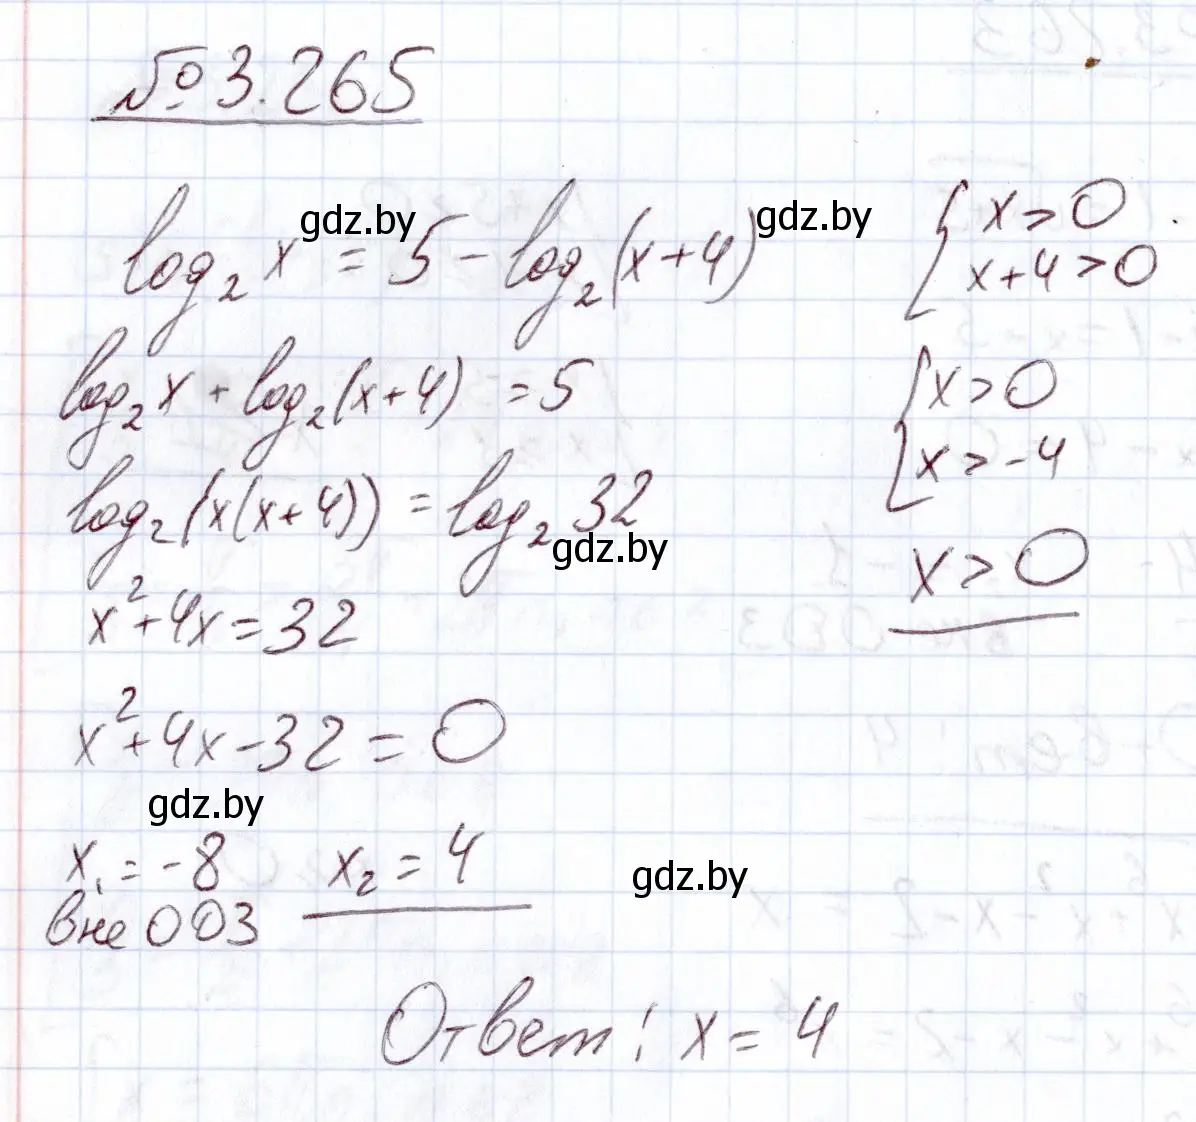 № 3.265
log₂ x = 5 - log₂(x+4)
gdz.by
gdz.by
{ x > 0
x+4 > 0
log₂ x + log₂(x+4) = 5
{ x > 0
x > -4
log₂(x(x+4)) = log₂ 32
gdz.by
x > 0
x² + 4x = 32
x² + 4x - 32 = 0
gdz.by
x₁ = -8 x₂ = 4
вне ОДЗ
gdz.by
Ответ: x = 4